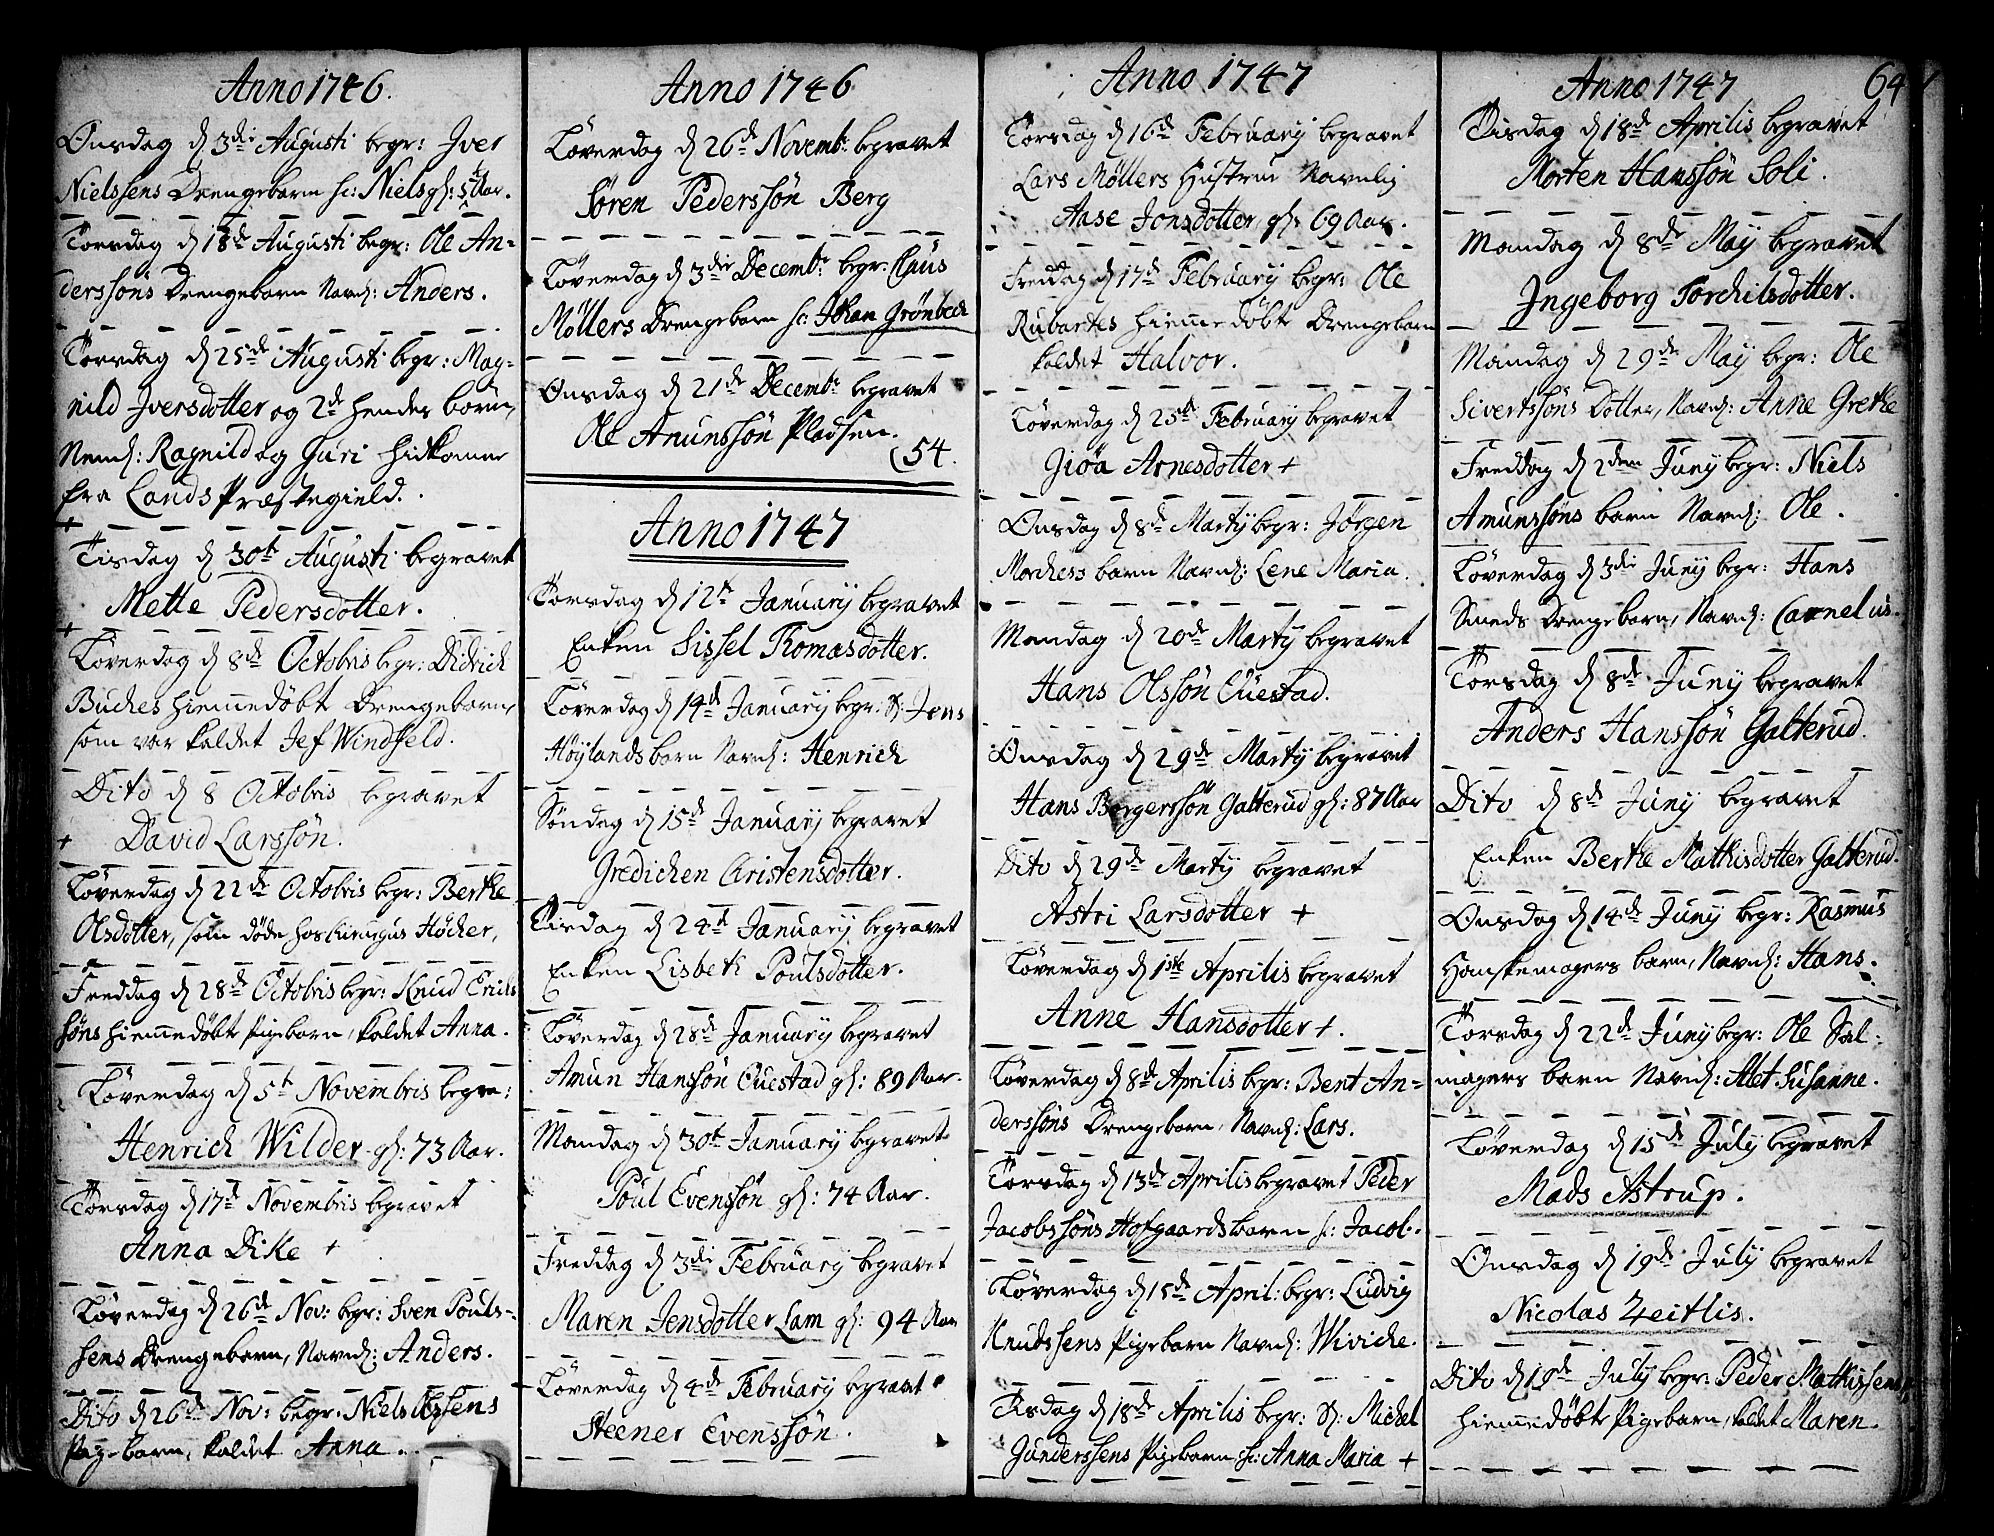 Anno 1746.
Onsdag d 3die Augusti begr: Iver
Nielssens Drengebarn h: Niels gl: 5 Aar.
Torsdag d 18de Augusti begr: Ole An=
derssöns Drengebarn Navnl: Anders.
Torsdag d 25de Augusti begr: Mag=
nild Iversdotter og 2de hendes börn,
Neml: Ragnild og Guri hidkomne
fra Lands Præstegield.
+
Tisdag d 30te Augusti begravet
Mette Pedersdotter.
+
Löverdag d 8de Octobris begr: Didrich
Buches hiemmedöbt Drengebarn,
som var kaldet Jef Windfeld.
Dito d 8 Octobris begravet
+ David Larssön.
Löverdag d 22de Octobris begr: Berthe
Olsdotter, som döde hos Höcker,
Freddag d 28de Octobris begr: Knud Erichs
söns hiemmedöbte Pigebarn, kaldet Anna.
Löverdag d 5te Novembris begra:
Henrich Wilder gl: 73 Aar.
Torsdag d 17de Novembris begravet
Anna Dike +
Löverdag d 26de Nov: begr: Sven Pouls=
sens Drengebarn, Navnl: Anders.
Dito d 26de Nov: begr: Niels Olssens
Pigebarn, kaldet Anna.
Anno 1746
Löverdag d 26de Novemb: begravet
Sören Pederssön Berg
Löverdag d 3die Decemb: begr: Claüs
Möllers Drengebarn h: Johan Grönbech
Onsdag d 21de Decemb: begravet
Ole Amunssön Pladsen.
(54.
Anno 1747
Torsdag d 12te January begravet
Enken Sissel Thomasdotter.
Löverdag d 14de January begr: S: Jens
Höylands barn Navnl: Henrich
Söndag d 15de January begravet
Gredichen Christensdotter.
Tirsdag d 24de January begravet
Enken Lisbeth Poulsdotter.
Löverdag d 28de January begravet
Amun Hanssön Cuestad gl: 89 Aar.
Mandag d 30te January begravet
Poul Evenssön gl: 74 Aar.
Freddag d 3die February begravet
Maren Jensdotter Lam gl: 94 Aar
Löverdag d 4de February begravet
Steener Evenssön.
Anno 1747
Torsdag d 16de February begravet
Lars Möllers Hustrue Navnlig
Aase Jonsdotter gl: 69 Aar.
Freddag d 17de February begr: Ole
Rubartes hiemmedöbte Drengebarn
kaldet Halvor.
Löverdag d 25de February begravet
Giöa Arnesdotter +
Onsdag d 8de Marty begr: Jörgen
Morchess barn Navnl: Lene Maria.
Mandag d 20de Marty begravet
Hans Olssön Cuestad.
Onsdag d 29de Marty begravet
Hans Börgerssön Galterud gl: 87 Aar
Dito d 29de Marty begravet
Astri Larsdotter +
Löverdag d 1ste Aprilis begravet
Anne Hansdotter +.
Löverdag d 8de Aprilis begr: Bent An=
derssöns Drengebarn, Navnl: Lars.
Torsdag d 13de Aprilis begravet Peder
Jacobssöns Hofgaards barn h: Jacob.
Löverdag d 15de April: begr: Ludvig
Knudssens Pigebarn Navnl: Wiviche.
Tisdag d 18de Aprilis begr: S: Michel
Gunderssens Pigebarn h: Anna Maria +
Anno 1747
64
Tisdag d 18de Aprilis begravet
Morten Hanssön Soli.
Mandag d 8de May begravet
Ingeborg Torchilsdotter.
Mandag d 29de May begr: Ole
Sivertssöns Dotter, Navnl: Anne Grethe
Freddag d 2den Juny begr: Niels
Amunssöns barn Navnl: Ole.
Löverdag d 3die Juny begr: Hans
Smeds Drengebarn, Navnl: Carnelus.
Torsdag d 8de Juny begravet
Anders Hanssön Galterud.
Dito d 8de Juny begravet
Enken Berthe Mathisdotter Galterud.
Onsdag d 14de Juny begr: Rasmus
Handskemagers barn, Navnl: Hans.
Torsdag d 22de Juny begr: Ole Sal=
magers barn Navnl: Alet Susanne.
Löverdag d 15de July begravet
Mads Astrup.
Onsdag d 19de July begravet
Nicolas Zeitlis.
Dito d 19de July begr: Peder Mathissens
hiemmedöbte Pigebarn, kaldet Maren.